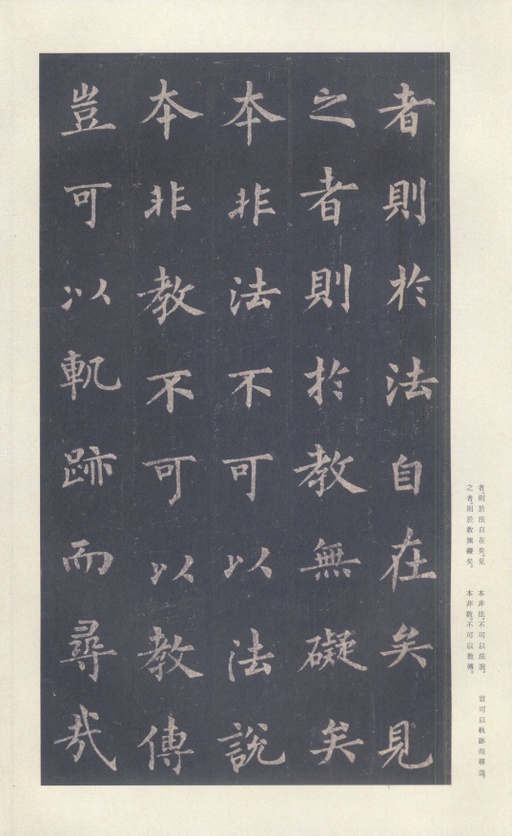 者則於法自在矣見
之者則於教無礙矣
本非法不可以法說
本非教不可以教傳
豈可以軌跡而尋哉
者。則於法自在矣。見
之者。則於教無礙矣。
本非法。不可以法說。
本非教。不可以教傳。
豈可以軌跡而尋哉。